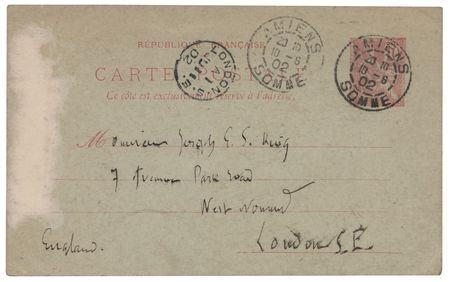 RÉPUBLIQUE FRANÇAISE
CARTE POSTALE
Ce côté est exclusivement réservé à l'adresse.
AMIENS
10 - 6
02
SOMME
AMIENS
10 - 6
02
SOMME
LONDON. S.E.
02
Monsieur Joseph E. S. King
7 Avenue Park Road
West Norwood
London S.E.
England.